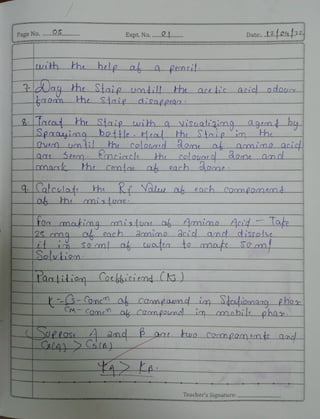 Page No. 05 Expt. No. 01 Date. 12/04/22
with the help of a pencil
7. Day the Staip untill the acetic acid odour
from the staip disappear.
8. Treat the Staip with a visualizing agent by
Spraying bottle. Heat the Staip in the
oven until the coloured zone of amino acid
are seen. Encircle the coloured zone and
mark the centre of each zone.
9. Calculate the Rf Value of each component
of the mixture.
For making mixture of Amino Acid - Take
25 mg of each amino acid and dissolve
it in 50 ml of water to make 50 ml
Solution.
Partition Coefficiend (K)
K = Cs - Concn of compound in Stationary phar
Cm - Concn of compound in mobile phar.
Suppose A and B are two components and
Cs(A) > Cs(B)
KA > KB
Teacher's Signature: